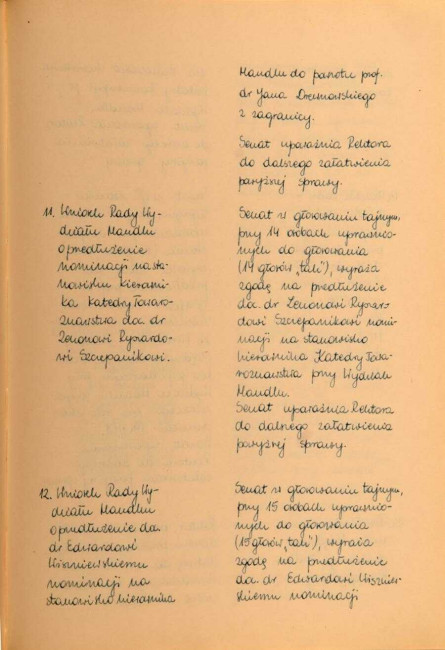 Handlu do powrotu prof.
dr Jana Drewnowskiego
z zagranicy.
Senat upoważnia Rektora
do dalszego załatwienia
powyższej sprawy.
11. Wniosek Rady Wy-
działu Handlu
o przedłużenie
nominacji na sta-
nowisku kierowni-
ka Katedry Towaro-
znawstwa doc. dr
Zenonowi Ryszardo-
wi Szczepanikowi.
Senat w głosowaniu tajnym,
przy 14 osobach uprawnio-
nych do głosowania
(14 głosów „tak”), wyraża
zgodę na przedłużenie
doc. dr Zenonowi Ryszar-
dowi Szczepanikowi nomi-
nacji na stanowisko
kierownika Katedry Towa-
roznawstwa przy Wydziale
Handlu.
Senat upoważnia Rektora
do dalszego załatwienia
powyższej sprawy.
12. Wniosek Rady Wy-
działu Handlu
o przedłużenie doc.
dr Edwardowi
Wiszniewskiemu
nominacji na
stanowisko kierownika
Senat w głosowaniu tajnym,
przy 15 osobach uprawnio-
nych do głosowania
(15 głosów „tak”), wyraża
zgodę na przedłużenie
doc. dr Edwardowi Wiszniew-
skiemu nominacji